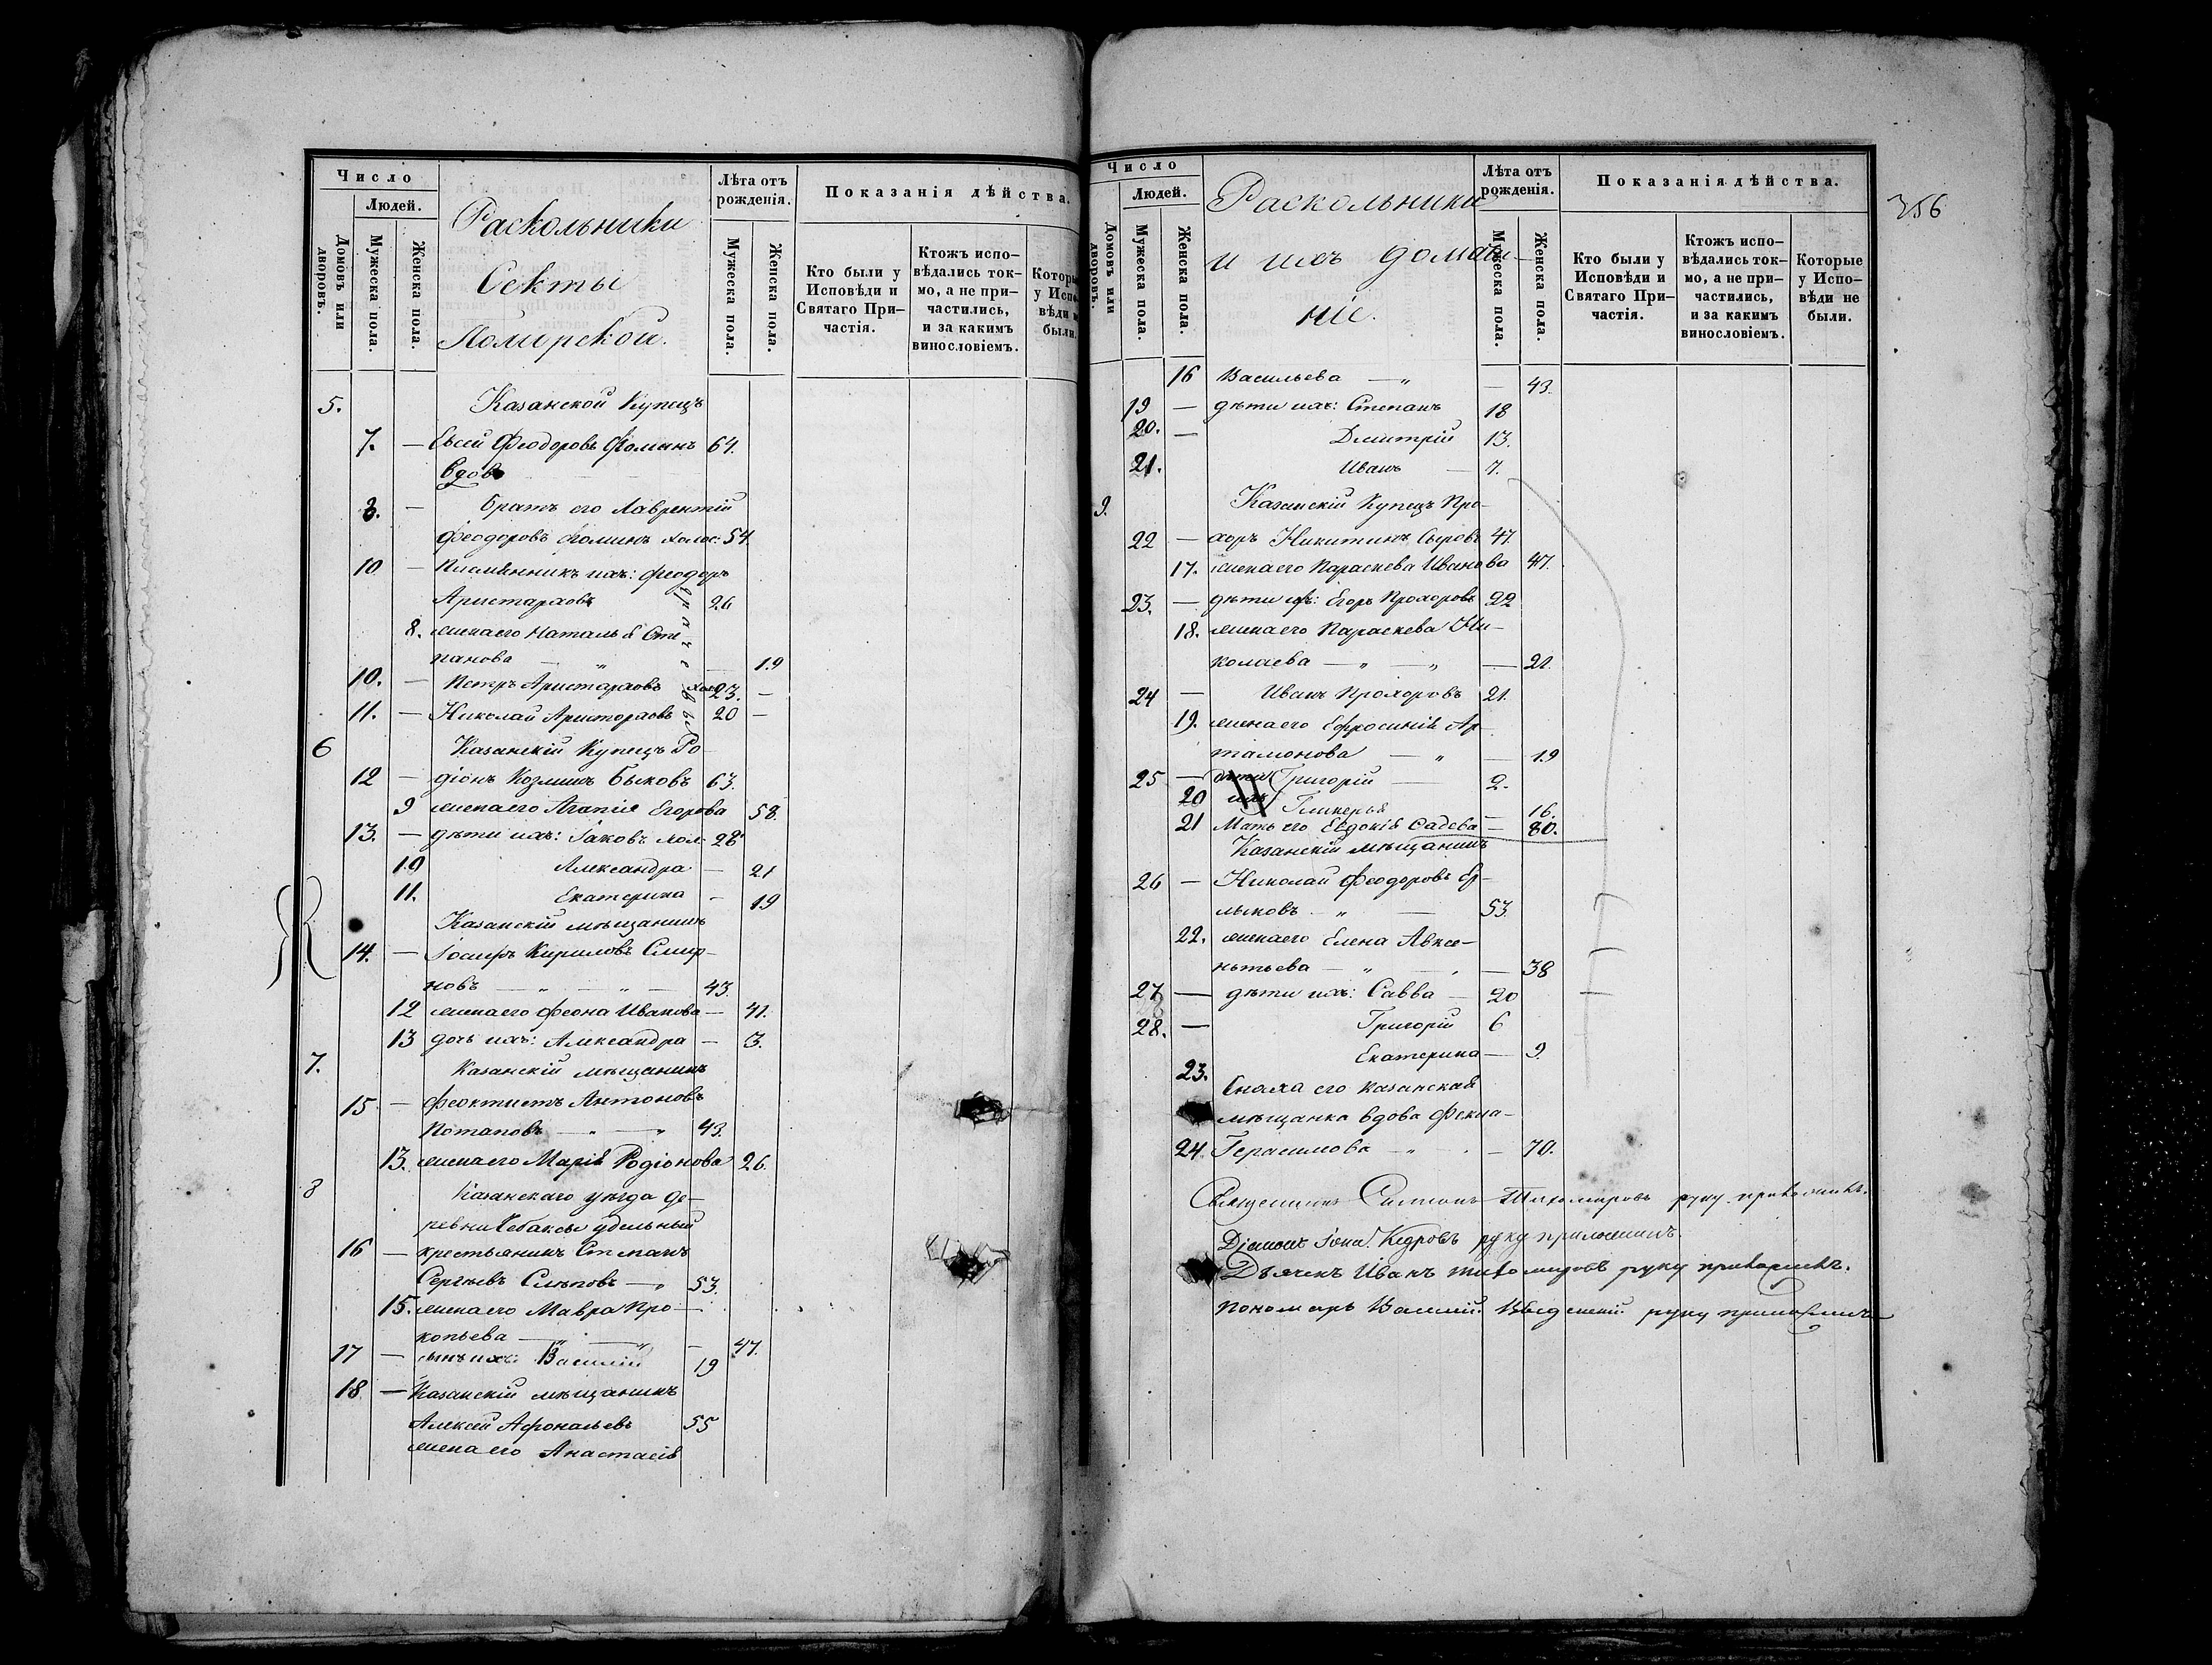 Число
Людей.
Домовъ или дворовъ.
Мужеска пола.
Женска пола.
Раскольники
Секты
Поморской.
Лѣта отъ рожденія.
Мужеска пола.
Женска пола.
Показанія дѣйства.
Кто были у Исповѣди и Святаго При-частія.
Ктожъ испо-вѣдались ток-мо, а не при-частились, и за какимъ винословіемъ.
Которые у Испо-вѣди не были.
5. Казанской Купецъ
7. — Евсей Феодоровъ Фоминъ 64.
вдовъ
8. — Братъ его Лаврентій
Феодоровъ Фоминъ холос: 54.
10 — Племянникъ ихъ: Феодоръ
Аристарховъ 26
8. жена его Наталья Сте-
панова — „ — 19
10. — Петръ Аристарховъ хол 23. —
11. — Николай Аристарховъ 20 —
6 Казанскій Купецъ Ро-
12 — діонъ Козминъ Быковъ 63.
9 жена его Агапія Егорова 58.
13. — дѣти ихъ: Іаковъ хол- 28
10 Александра — 21
11. Екатерина — 19
Казанскій мѣщанинъ
14. — Іосифъ Кириловъ Смир-
новъ — „ — „ — 43.
12 жена его Феона Иванова — 41.
13 дочь ихъ: Александра — 3.
7. Казанскій мѣщанинъ
15 — Феоктистъ Антоновъ
Потаповъ — „ — „ 43.
13. жена его Марія Родіонова 26.
8 Казанскаго уѣзда де-
ревни Чебаксы удельный
16 — крестьянинъ Степанъ
Сергѣевъ Слѣповъ — „ 53.
15. жена его Мавра Про-
копьева — „ — „ — 47.
17 — сынъ ихъ: Василій 19
18. — Казанскій мѣщанинъ
Алексей Афонасьевъ 55
жена его Анастасія
Число
Людей.
Домовъ или дворовъ.
Мужеска пола.
Женска пола.
Раскольники
и ихъ домаш-
ніе.
Лѣта отъ рожденія.
Мужеска пола.
Женска пола.
Показанія дѣйства.
Кто были у Исповѣди и Святаго При-частія.
Ктожъ испо-вѣдались ток-мо, а не при-частились, и за какимъ винословіемъ.
Которые у Испо-вѣди не были.
356
16 Васильева — „ — 43.
19 — дѣти ихъ: Степанъ 18
20. — Дмитрій 13.
21. Иванъ — 7.
9. Казанскій Купецъ Про-
22 — хоръ Никитинъ Сыровъ 47.
17. жена его Параскева Иванова 47.
23. — дѣти ихъ: Егоръ Прохоровъ 22
18. жена его Параскева Ни-
колаева — „ — „ — 21.
24 — Иванъ Прохоровъ 21.
19. жена его Ефросинія Ар-
тамонова — „ — 19
25 — дѣти Григорій — 2.
20 ихъ Гликерья — 16.
21 Мать его Евдокія Садева — 80.
Казанскій мѣщанинъ
26 — Николай Феодоровъ Ер-
мыковъ. „ — 53.
22. жена его Елена Авксе-
нтьева — „ — 38
27 — дѣти ихъ: Савва — 20
28. — Григорій 6
23. Екатерина — 9.
Сноха его Казанская
мѣщанка вдова Фекла-
24. Герасимова — „ — 70.
Священникъ Симеонъ Тихомировъ руку приложилъ.
Діаконъ Іона Кедровъ руку приложилъ.
Дьячекъ Иванъ Тихомировъ руку приложилъ.
Пономарь Василій Введенскій руку приложилъ